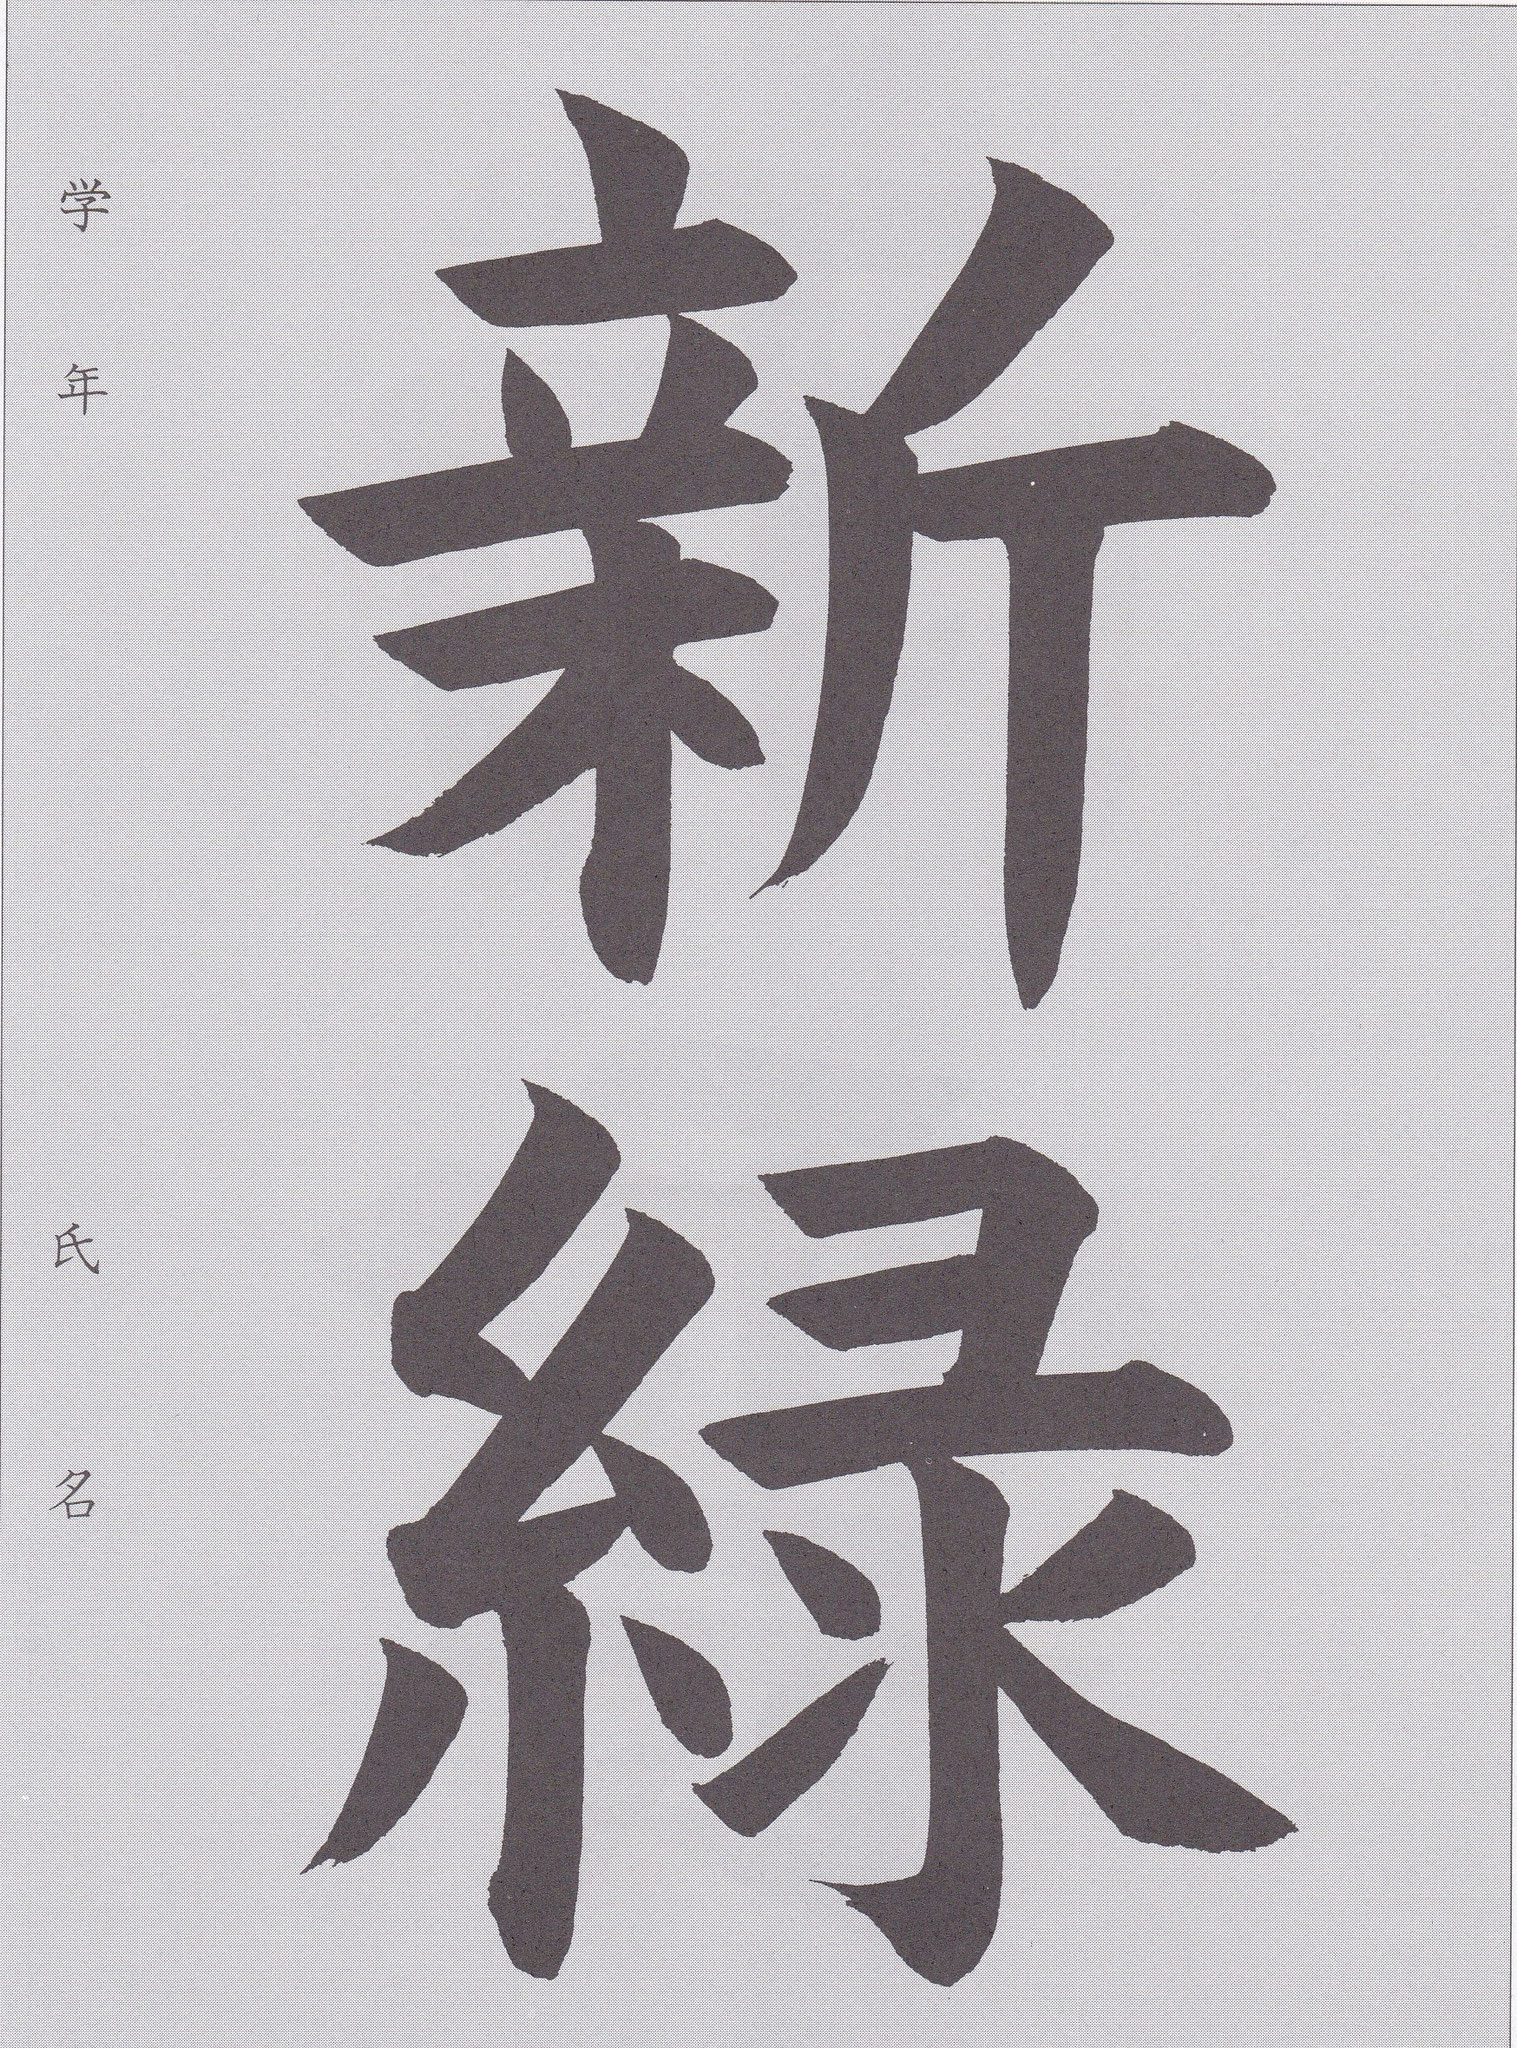 新緑
学年 氏名